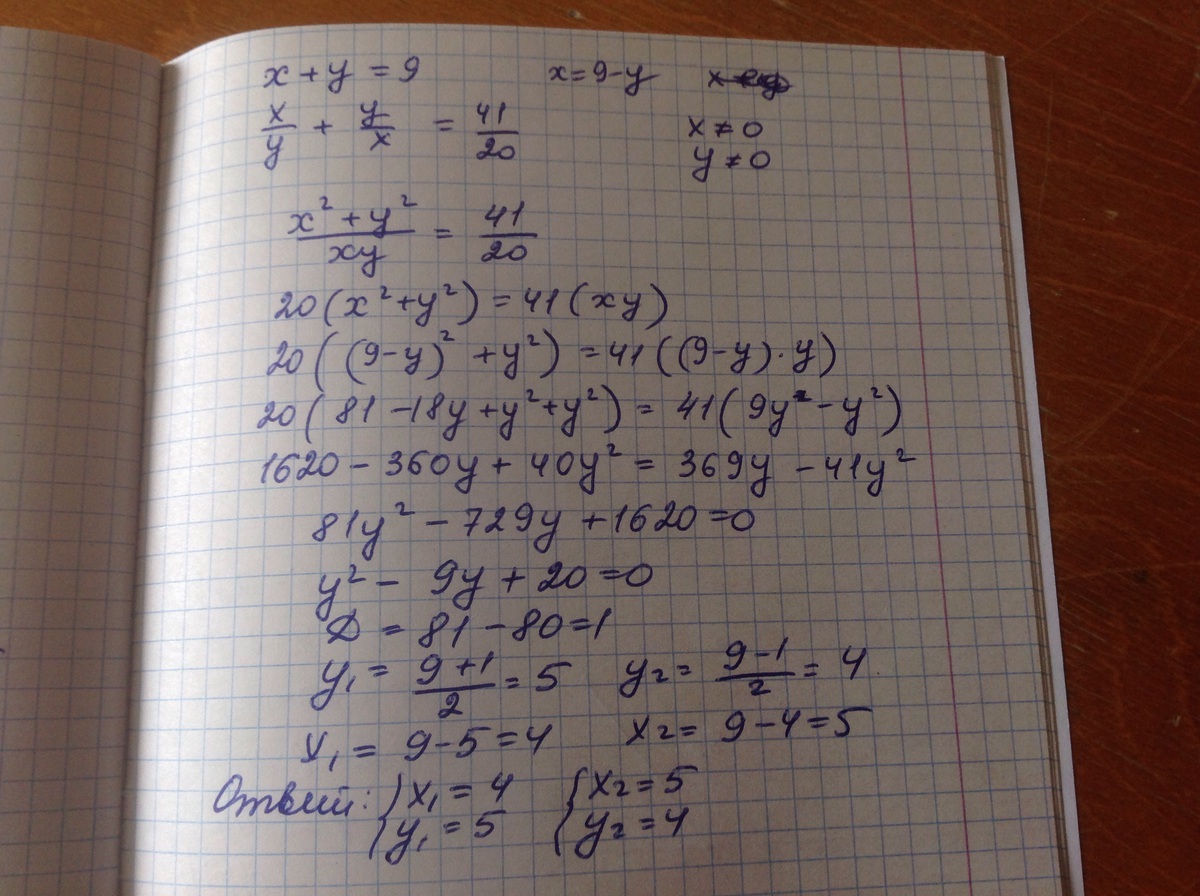 x + y = 9 x = 9 - y
x/y + y/x = 41/20 x ≠ 0
y ≠ 0
(x² + y²)/(xy) = 41/20
20(x² + y²) = 41(xy)
20((9 - y)² + y²) = 41((9 - y) · y)
20(81 - 18y + y² + y²) = 41(9y - y²)
1620 - 360y + 40y² = 369y - 41y²
81y² - 729y + 1620 = 0
y² - 9y + 20 = 0
D = 81 - 80 = 1
y₁ = (9 + 1)/2 = 5 y₂ = (9 - 1)/2 = 4
x₁ = 9 - 5 = 4 x₂ = 9 - 4 = 5
Ответ: { x₁ = 4 { x₂ = 5
y₁ = 5 y₂ = 4